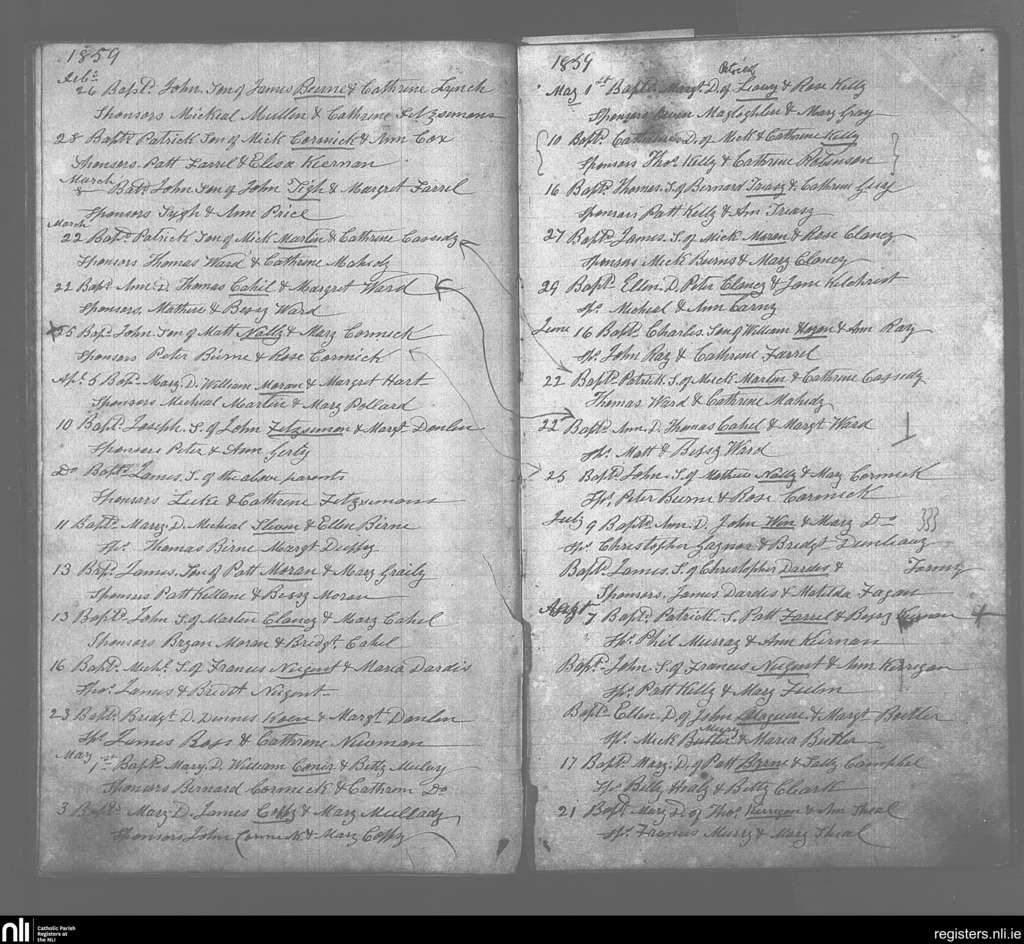 1859
Feb.
26 Bapt. John. Son of James Beirne & Cathrine Lynch
Sponsors Micheal Mullin & Cathrine Fitzsemons
28 Bapt. Patrick Son of Mick Cormick & Ann Cox
Sponsors. Patt Farrel & Elisa Kiernan
March
8 Bapt. John Son of John Tigh & Margret Farrel
Sponsors Tygh & Ann Price
March
22 Bapt. Patrick Son of Mick Martin & Cathrine Cassedy
Sponsors Thomas Ward & Cathrine Mahedy
22 Bapt. Ann D. Thomas Cahil & Margret Ward
Sponsors. Mathew & Bessy Ward
25 Bapt. John Son of Matt Nally & Mary Cormick
Sponsors Peter Birne & Rose Cormick
Apl. 5 Bapt. Mary D. William Moran & Margret Hart
Sponsors Micheal Martin & Mary Pollard
10 Bapt. Joseph. S. of John Fitzsimon & Margt Donlin
Sponsors Peter & Ann Gerty
Do Bapt. James. S. of the above parents
Sponsors Luke & Cathrine Fitzsemons
11 Bapt. Mary D. Micheal Slevin & Ellen Birne
Sps. Thomas Birne Margt Duffy
13 Bapt. James. Son of Patt Moran & Mary Graily
Sponsors Patt Kellane & Bessy Moran
13 Bapt. John S. of Martin Clancy & Mary Cahel
Sponsors Bryan Moran & Bridgt. Cahel
16 Bapt. Michl. S. of Francis Nugent & Maria Dardis
Thos. James & Bridst Nugent
23 Bapt. Bridgt D. Dennis Keen & Margt Donlin
Sps. James Ross & Cathrine Newman
May 1st Bapt. Mary. D. William Conis & Betty Mulvy
Sponsors Bernard Cormick & Cathrine Do
3 Bapt. Mary D. James Coffy & Mary Mullady
Sponsors John Cormick & Mary Coffy
1859
Patrick
May 1st Bapt. Margt. D. of Leavy & Rose Kelly
Sponsors Owen Magloghlin & Mary Gray
10 Bapt. Cathrine. D. of Mick & Cathrine Kelly
Sponsors Thos. Kelly & Cathrine Robinson
16 Bapt. Thomas. S. of Bernard Treasy & Cathrine Guy
Sponsors Patt Kelly & Ann Treasy
27 Bapt. James. S. of Mick Moran & Rose Clancy
Sponsors Mick Burns & Mary Clancy
29 Bapt. Ellen. D. Peter Clancy & Jane Kilchrist
Sps. Micheal & Ann Carny
June 16 Bapt. Charles. Son of William Horan & Ann Ray
Sps. John Ray & Cathrine Farrel
22 Bapt. Patrick. S. of Mick Martin & Cathrine Cassedy
Thomas Ward & Cathrine Mahedy
22 Bapt. Ann. D. Thomas Cahel & Margt Ward
Sps. Matt & Bessy Ward
25 Bapt. John. S. of Mathew Nally & Mary Cormick
Sps. Peter Burne & Rose Cormick
July 9 Bapt. Ann. D. John Won & Mary Do
Sps Christopher Gaynor & Bridgt Dunleavy
Bapt. James. S. of Christopher Dardis &
Sponsors. James Dardis & Matilda Fagan
Augt 7 Bapt. Patrick. S. Patt Farrel & Bessy Kiernan
Sps. Phil Murray & Ann Kiernan
Bapt. John. S. of Francis Nugent & Ann Kerrigan
Sps. Patt Kelly & Mary
Bapt. Ellen D. of John Maguire & Margt Butler
Sps. Mick Butler & Maria Butler
17 Bapt. Mary. D. of Patt Byrne & Sally Camphel
Sps Billy Healy & Betty Cleark
21 Bapt Mary D. of Thos. Kerrigan & Ann Sheal
Sps. Francis Murry & Mary Sheal
nli
Catholic Parish
Registers at
the NLI
registers.nli.ie